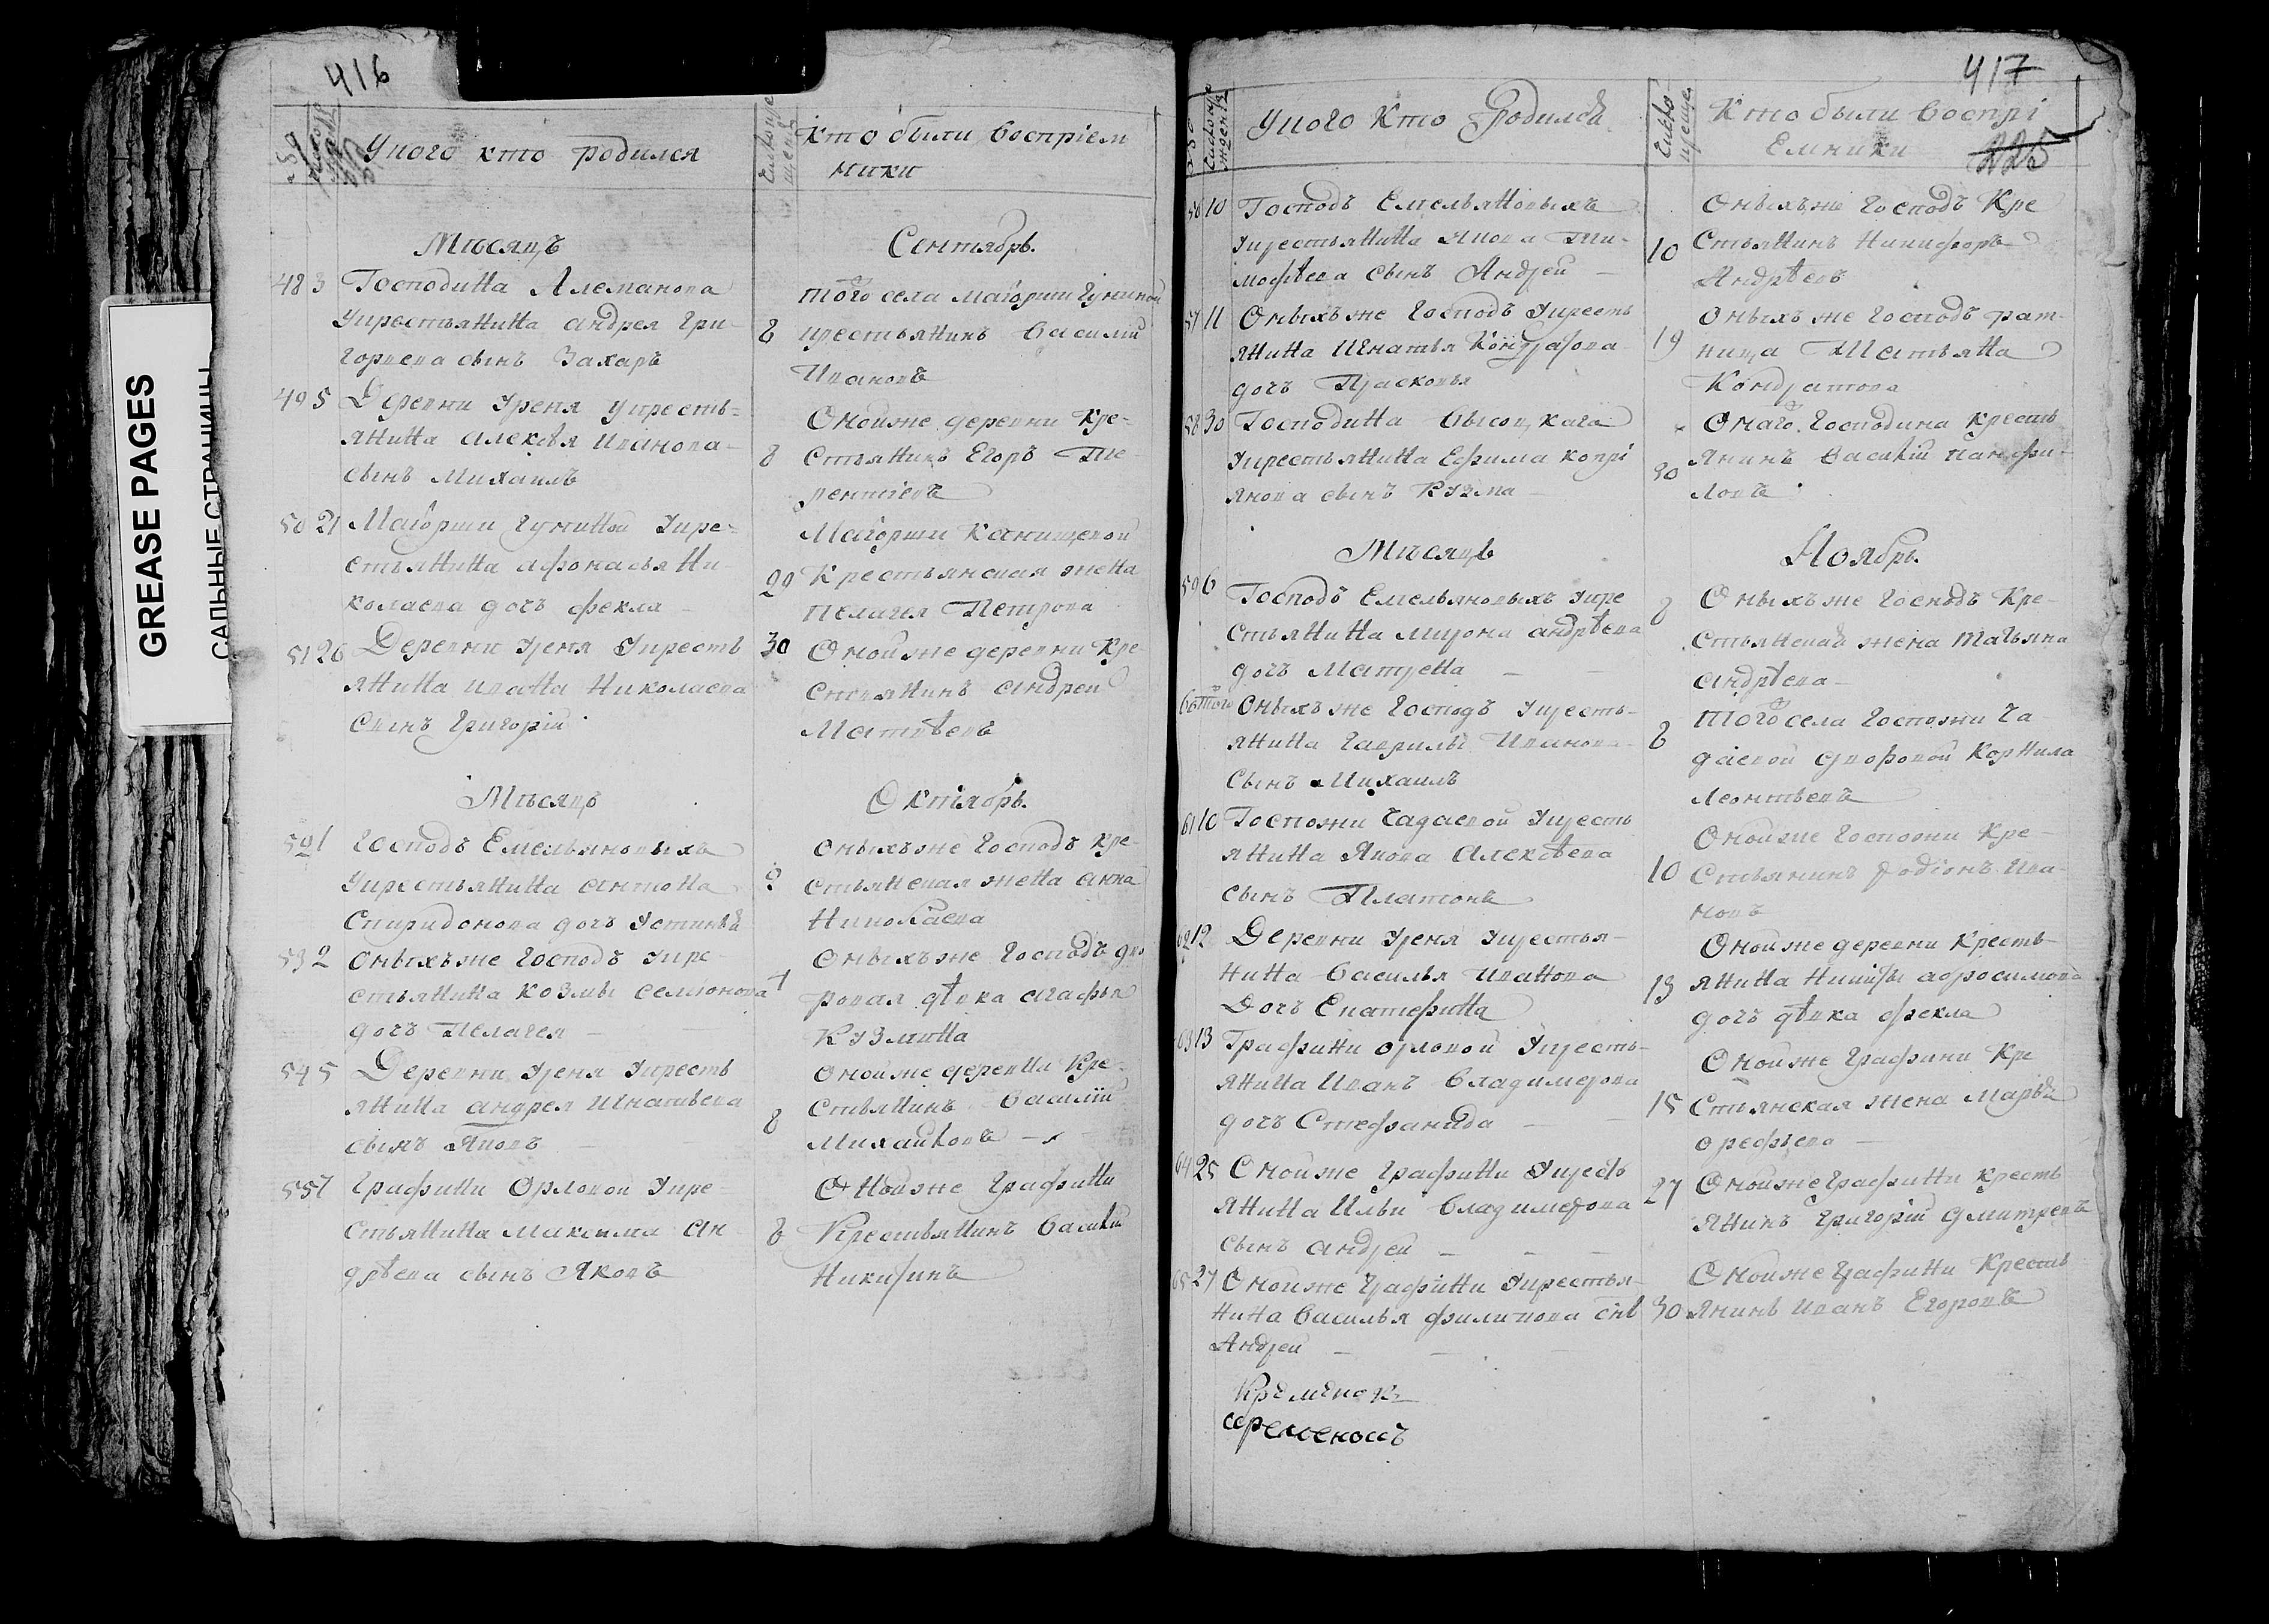 416
У кого кто родился
Кто были воспрiем
ники
Мѣсяцъ
Сентябрь.
48 3 Господина Алеманова
укрестьянина андрея Гри-
горьева сынъ Захаръ
того села маіорши Гуниной
8 крестьянинъ Василий
Ивановъ
49 5 Деревни Уреня укресть-
янина алексѣя Иванова
сынъ Михаилъ
Онойже деревни Кре-
8 стьянинъ Егоръ Те-
рентiевъ
50 21 Маiорши Гуниной Укре-
стьянина Афонасья Ни-
колаева дочь фекла
Маіорши Канищевой
22 Крестьянская жена
Пелагея Петрова
51 26 Деревни Уреня Укресть
янина ивана Николаева
Сынъ Григорiй
30 Онойже деревни Кре-
стьянинъ андрей
Матвѣевъ
Мѣсяцъ
Октябрь.
52 1 Господъ Емельяновыхъ
Укрестьянина антона
Спиридонова дочь Устинья
Оныхъже Господъ Кре-
2 стьянская жена анна
Николаева
53 2 Оныхъже Господъ Укре-
стьянина козмы семionова
дочь Пелагея
Оныхъже Господъ дво
7 ровая дѣвка агафья
Кузмина
54 5 Деревни Уреня Укресть
янина андрея Игнатьева
сынъ Яковъ
Онойже деревни Кре-
8 стьянинъ Василiй
Михайловъ
55 7 Графини Орловой Укре-
стьянина максима Ан
дрѣева сынъ Яковъ
Онойже Графини
8 Крестьянинъ Василiй
Никитинъ
417
У кого Кто Родился
Кто были Воспрi
Емники
225
56 10 Господъ Емельяновыхъ
укрестьянина Якова Ти-
мофѣева сынъ Андрей
Оныхъже Господъ Кре
10 Стьянинъ Никифоръ
Андрѣевъ
57 11 Оныхъже Господъ Укресть
янина Игнатья Кондратова
дочь Прасковья
Оныхъже Господъ рат-
19 ница Татьяна
Кондратова
58 30 Господина Высоцкаго
укрестьянина Ефима копрi
янова сынъ Кузма
Онаго Господина Кресть
30 Янинъ Василiй Панфи-
ловъ
Мѣсяцъ
Ноябрь.
59 6 Господъ Емельяновыхъ укре
Стьянина Мирона андрѣева
дочь Матрена
8 Оныхъже Господъ Кре-
стьянская жена татьяна
андрѣева
60 того Оныхъже Господъ укресть-
янина Гаврилы Иванова
Сынъ Михаилъ
того села Госпожи Ча
8 даевой дворовой Корнила
Леонтьевъ
61 10 Госпожи Чадаевой Укресть
янина Якова Алексѣева
сынъ Платонъ
Онойже Госпожи Кре-
10 Стьянинъ Родiонъ Ива-
новъ
62 12 Деревни Уреня Укрестья-
нина Василья Иванова
Дочь Екатерина
Онойже деревни Кресть-
13 янина Никиты абросимова
дочь дѣвка фекла
63 13 Графини орловой Укресть-
янина Иванъ Владимерова
дочь Стефанида
Онойже Графини Кре
15 Стьянская жена Марья
Орефьева
64 25 Онойже Графини Укресть
янина Ильи Владимерова
сынъ андрей
27 Онойже Графини Кресть
янинъ Григорiй Дмитревъ
65 27 Онойже Графини Укрестья-
нина Василья филипова снъ
Андрей
Онойже Графини Кресть
30 янинъ Иванъ Егоровъ
Кременокъ
GREASE PAGES
САЛЬНЫЕ СТРАНИЦЫ